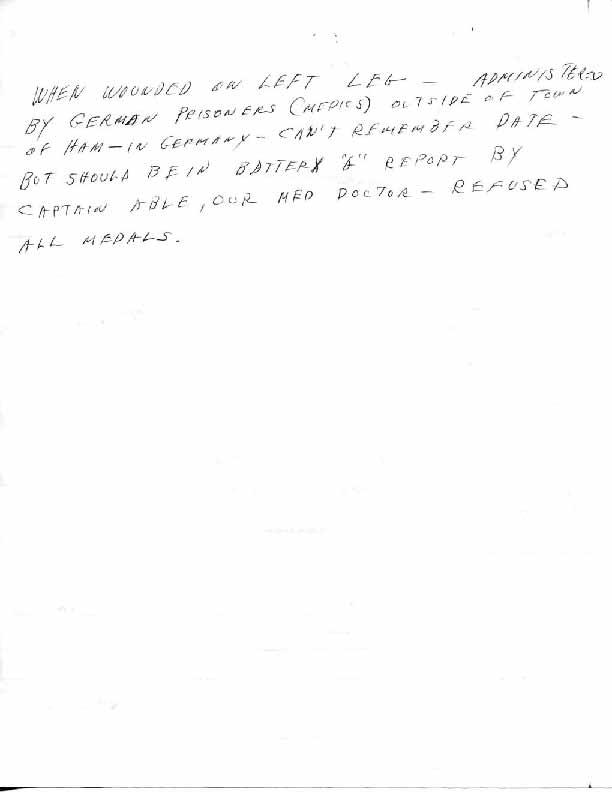 WHEN WOUNDED ON LEFT LEG — ADMINISTERED
BY GERMAN PRISONERS (MEDICS) OUTSIDE OF TOWN
OF HAM—IN GERMANY— CAN'T REMEMBER DATE —
BUT SHOULD BE IN BATTERY "A" REPORT BY
CAPTAIN ABLE, OUR MED DOCTOR — REFUSED
ALL MEDALS.